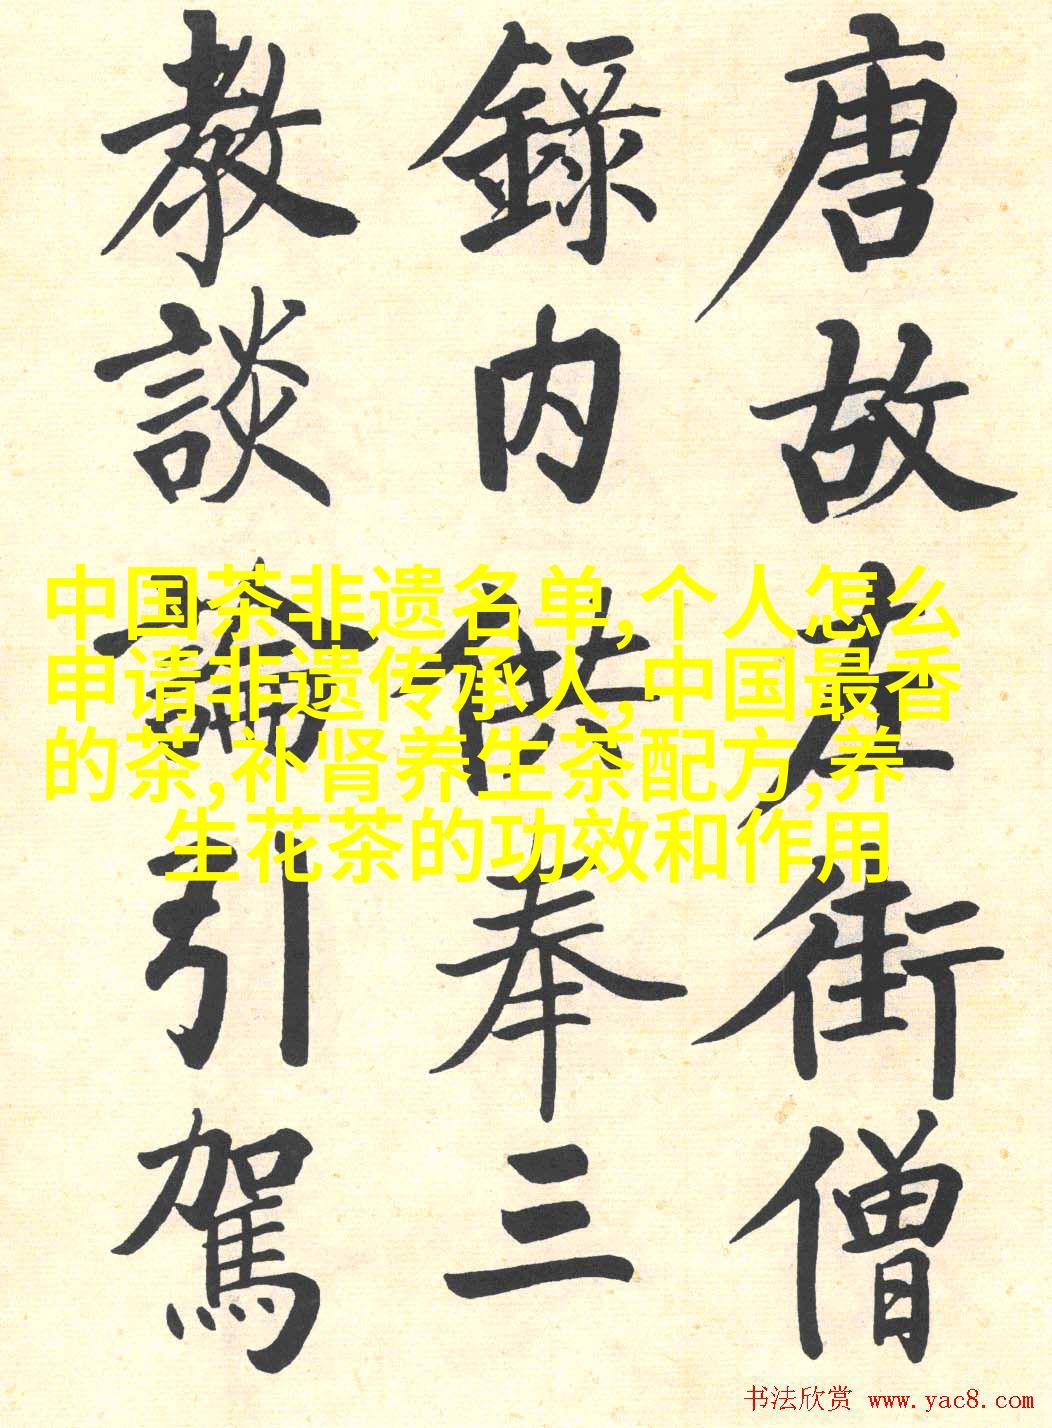 唐故左街僧
錄內供奉三
教談論引駕
中国茶非遗名单,个人怎么
申请非遗传承人,中国最香
的茶,补肾养生茶配方,养
生花茶的功效和作用
书法欣赏 www.yac8.com